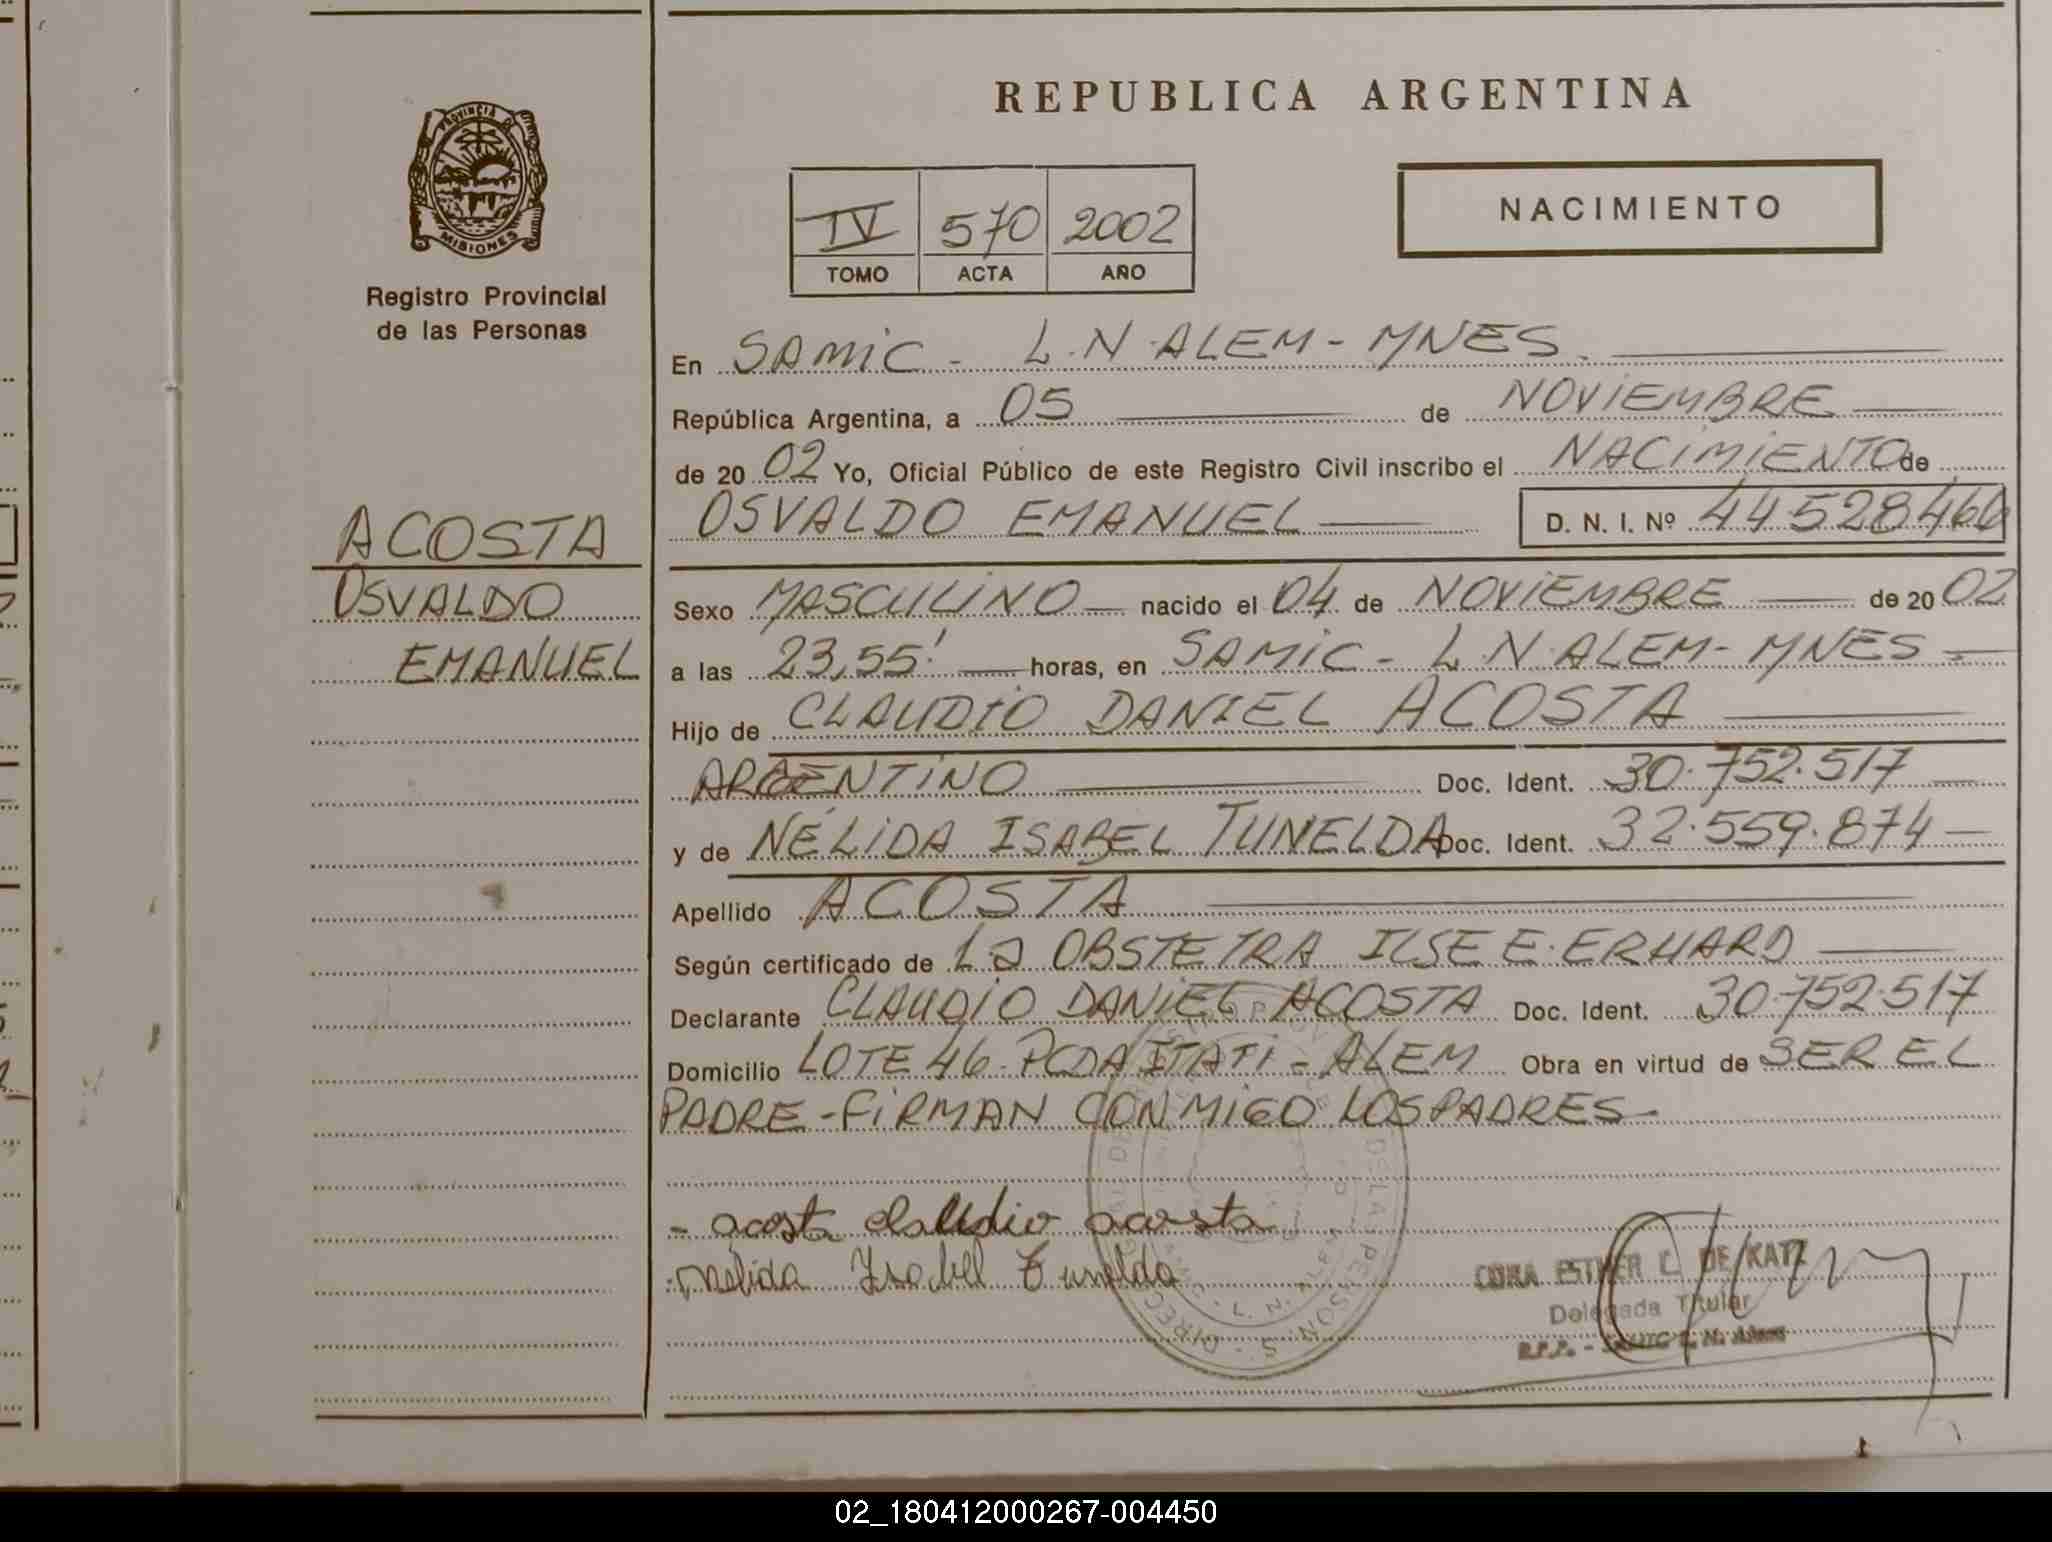 REPUBLICA ARGENTINA
PROVINCIA DE
MISIONES
Registro Provincial
de las Personas
IV 570 2002
TOMO ACTA AÑO
NACIMIENTO
ACOSTA
OSVALDO
EMANUEL
En SAMIC - L.N.ALEM - MNES.
República Argentina, a 05 de NOVIEMBRE
de 20 02 Yo, Oficial Público de este Registro Civil inscribo el NACIMIENTO de
OSVALDO EMANUEL D. N. I. Nº 44528460
Sexo MASCULINO nacido el 04 de NOVIEMBRE de 20 02
a las 23,55' horas, en SAMIC - L.N.ALEM - MNES -
Hijo de CLAUDIO DANIEL ACOSTA
ARGENTINO Doc. Ident. 30.752.517
y de NÉLIDA ISABEL TUNELDA Doc. Ident. 32.559.874 -
Apellido ACOSTA
Según certificado de La OBSTETRA ILSE E. ERHARD
Declarante CLAUDIO DANIEL ACOSTA Doc. Ident. 30.752.517
Domicilio LOTE 46 - PCDA ITATI - ALEM Obra en virtud de SER EL
PADRE - FIRMAN CONMIGO LOS PADRES -
- acosta claudio acosta
nélida Ysabel Tunelda
ESTHER L. DE KATZ
Delegada Titular
R.P.P. - SAMIC L. N. Alem
02_180412000267-004450